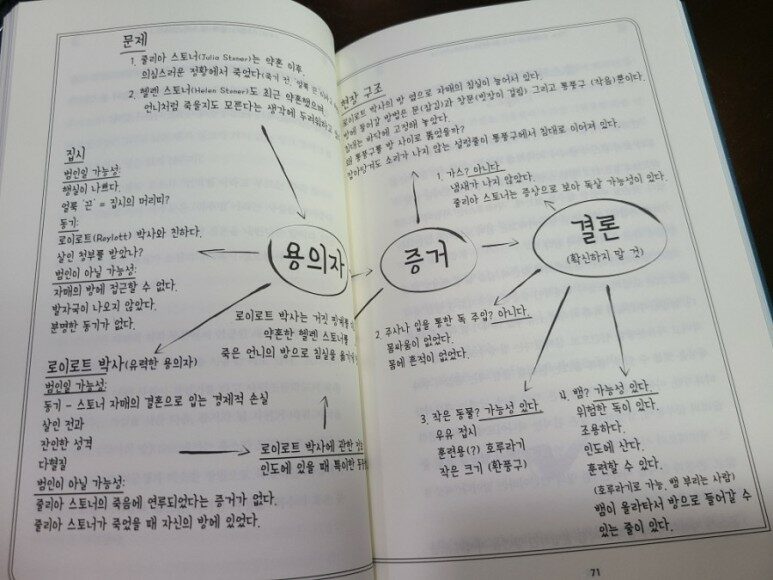 문제
1. 줄리아 스토너(Julia Stoner)는 약혼 이후,
의심스러운 정황에서 죽었다(죽기 전,
2. 헬렌 스토너(Helen Stoner)도 최근 약혼했으며
언니처럼 죽을지도 모른다는 생각에 두려워하고
집시
범인일 가능성:
행실이 나쁘다.
얼룩 '끈' = 집시의 머리띠?
동기:
로이로트(Roylott) 박사와 친하다.
살인 청부를 받았나?
범인이 아닐 가능성:
자매의 방에 접근할 수 없다.
발자국이 나오지 않았다.
분명한 동기가 없다.
용의자
로이로트 박사는 거짓
약혼한 헬렌 스토너를
죽은 언니의 방으로 침실을
로이로트 박사(유력한 용의자)
범인일 가능성:
동기 - 스토너 자매의 결혼으로 입는 경제적 손실
살인 전과
잔인한 성격
다혈질
범인이 아닐 가능성:
줄리아 스토너의 죽음에 연루되었다는 증거가 없다.
줄리아 스토너가 죽었을 때 자신의 방에 있었다.
로이로트 박사에 관한
인도에 있을 때 특이한
현장 구조
로이로트 박사의 방 옆으로 자매의 침실이 늘어서 있다.
방에 들어갈 방법은 문(잠김)과 창문(빗장이 걸림) 그리고 통풍구 (작음)뿐이다.
침대는 바닥에 고정해 놓았다.
왜 통풍구를 방 사이로 뚫었을까?
잡아당겨도 소리가 나지 않는 설렁줄이 통풍구에서 침대로 이어져 있다.
증거
결론
(확신하지 말 것)
1. 가스? 아니다.
냄새가 나지 않았다.
줄리아 스토너는 증상으로 보아 독살 가능성이 있다.
2. 주사나 입을 통한 독 주입? 아니다.
몸싸움이 없었다.
몸에 흔적이 없었다.
3. 작은 동물? 가능성 있다.
우유 접시
훈련용(?) 호루라기
작은 크기 (환풍구)
4. 뱀? 가능성 있다.
위험한 독이 있다.
조용하다.
인도에 산다.
훈련할 수 있다.
(호루라기로 가능, 뱀 부리는 사람)
뱀이 올라타서 방으로 들어갈 수
있는 줄이 있다.
71